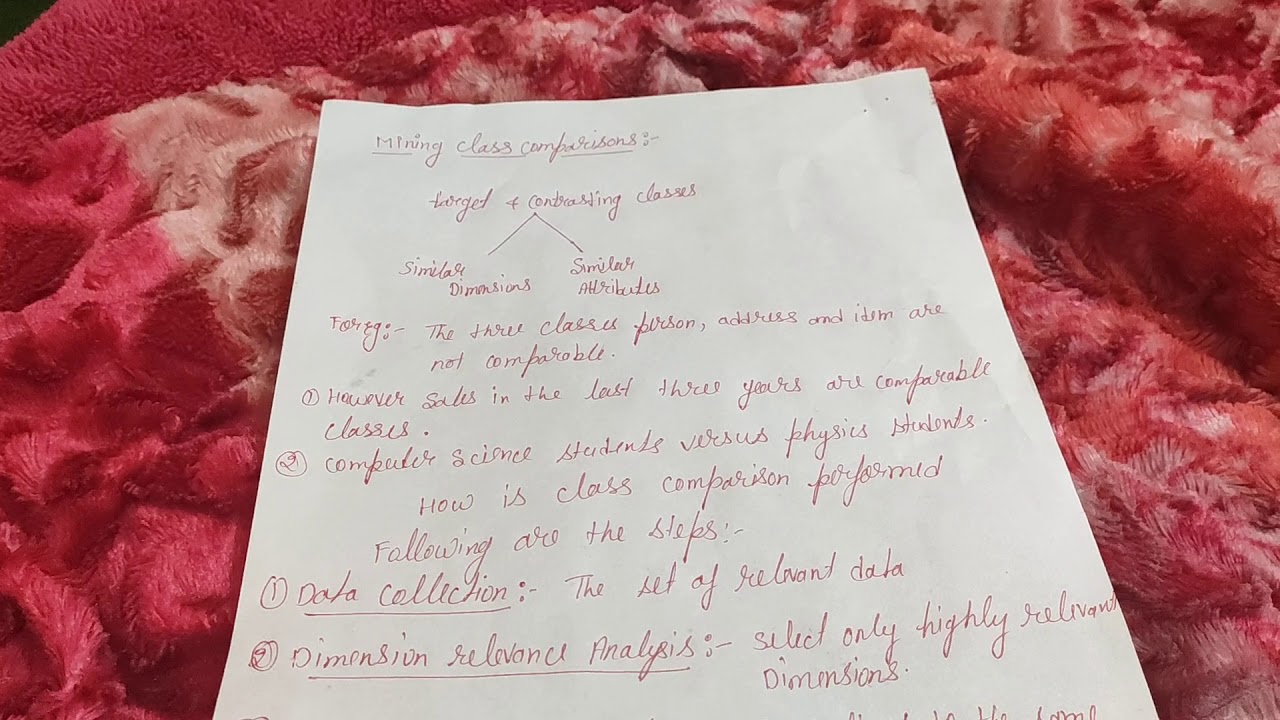 Mining class comparisons:-
target & contrasting classes
Similar Similar
Dimensions Attributes
For eg:- The three classes person, address and item are
not comparable.
① However sales in the last three years are comparable
classes.
② computer science students versus physics students.
How is class comparison performed
Following are the steps:-
① Data Collection:- The set of relevant data
② Dimension relevance Analysis:- select only highly relevant
Dimensions.
to the same